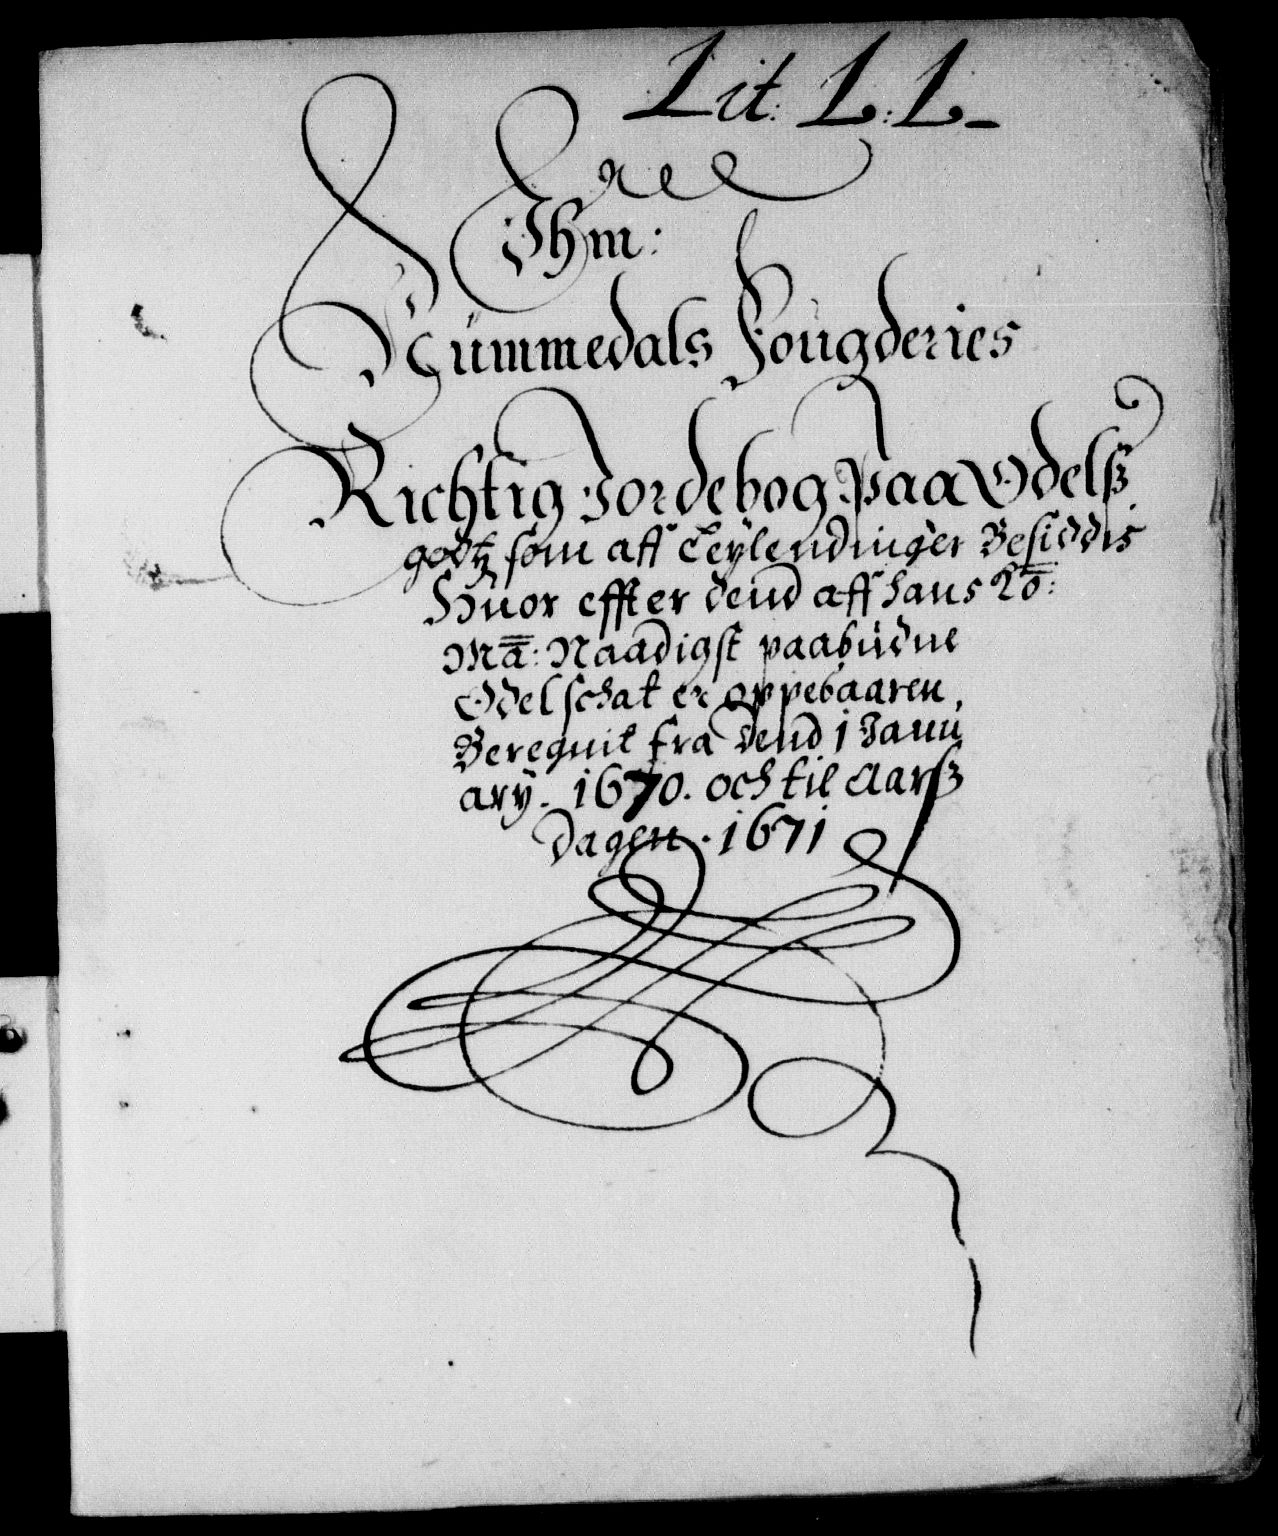 Lit: L: L.
Ihm:
Nümmedals Fougderies
Richtig Jordebog Paa Odelsz
godtz som aff Leylendinger Besiddis
Huor effter dend aff hans Ko:
Ma: Naadigst paabüdne
Odelschat er oppebaaren,
Beregnit fra dend 1 Janu
ary. 1670. och til Aarsz
dagen. 1671